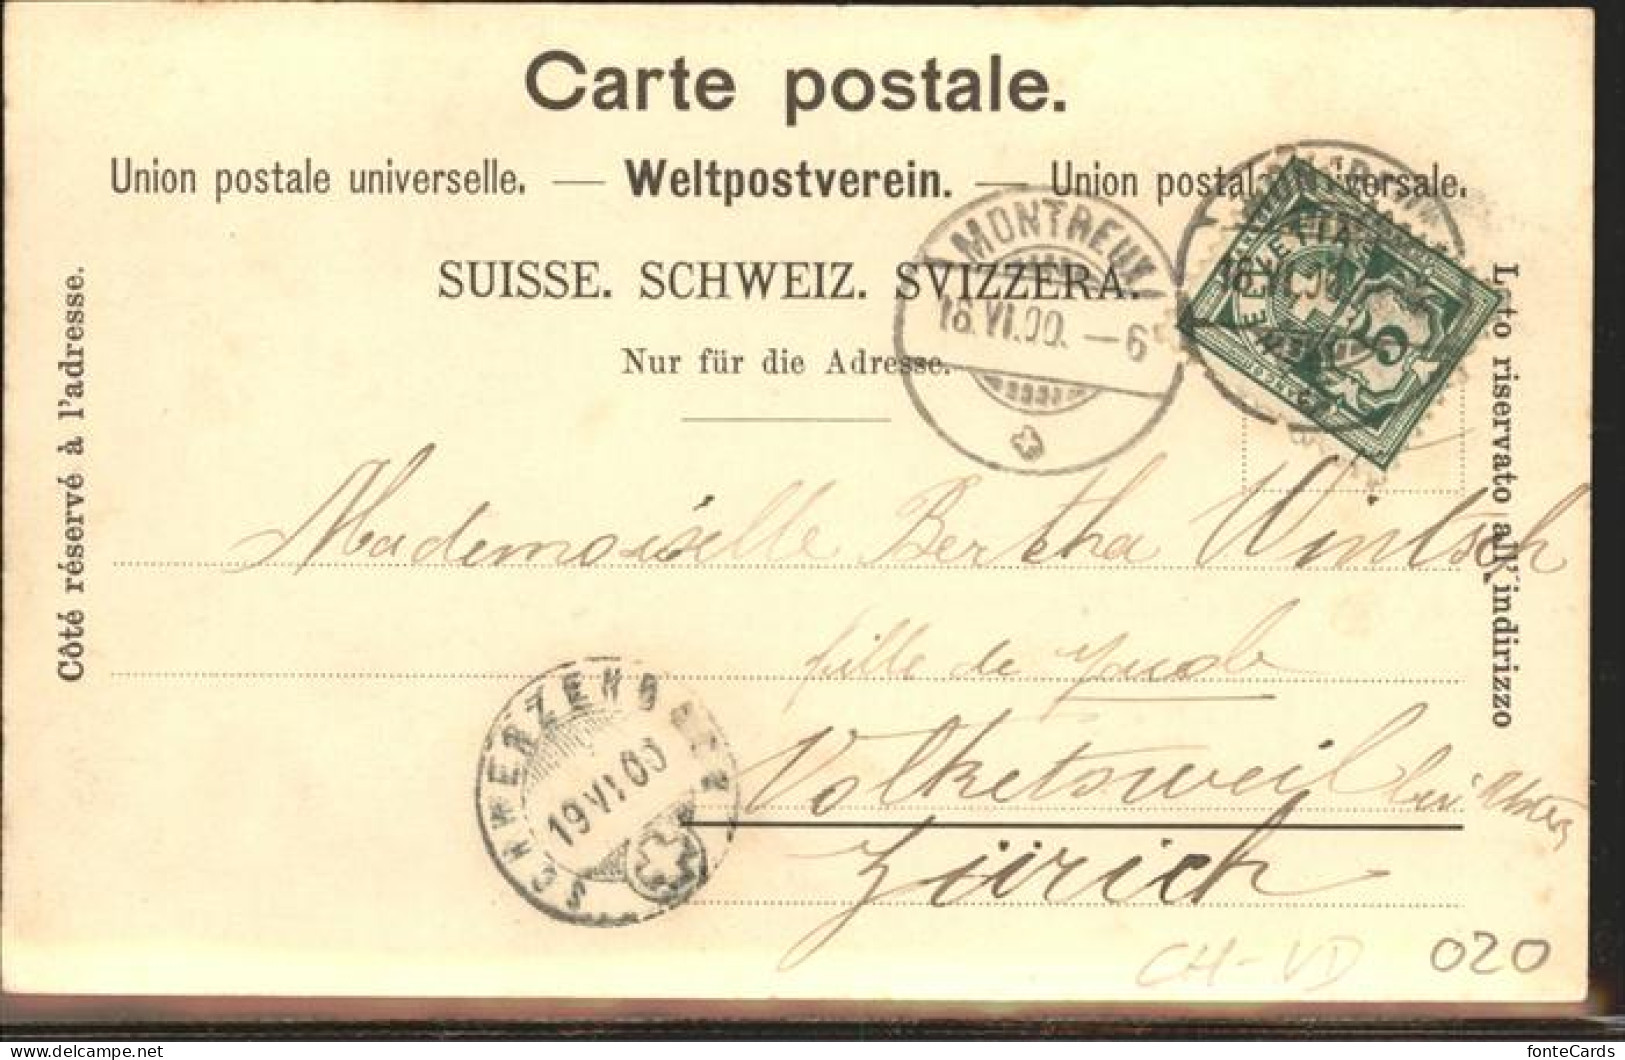 Carte postale.
Union postale universelle. — Weltpostverein. — Union postale universale.
SUISSE. SCHWEIZ. SVIZZERA.
Nur für die Adresse.
Côté réservé à l'adresse.
Lato riservato all'indirizzo
MONTREUX
18.VI.00. —6
18.VI.00
HELVETIA
5
Mademoiselle Bertha Wintsch
fille de Jacob
Volketsweil bei Uster
Zürich
SCHWERZENBACH
19.VI.00
CH-VD 020
delcampe.net
fonteCards